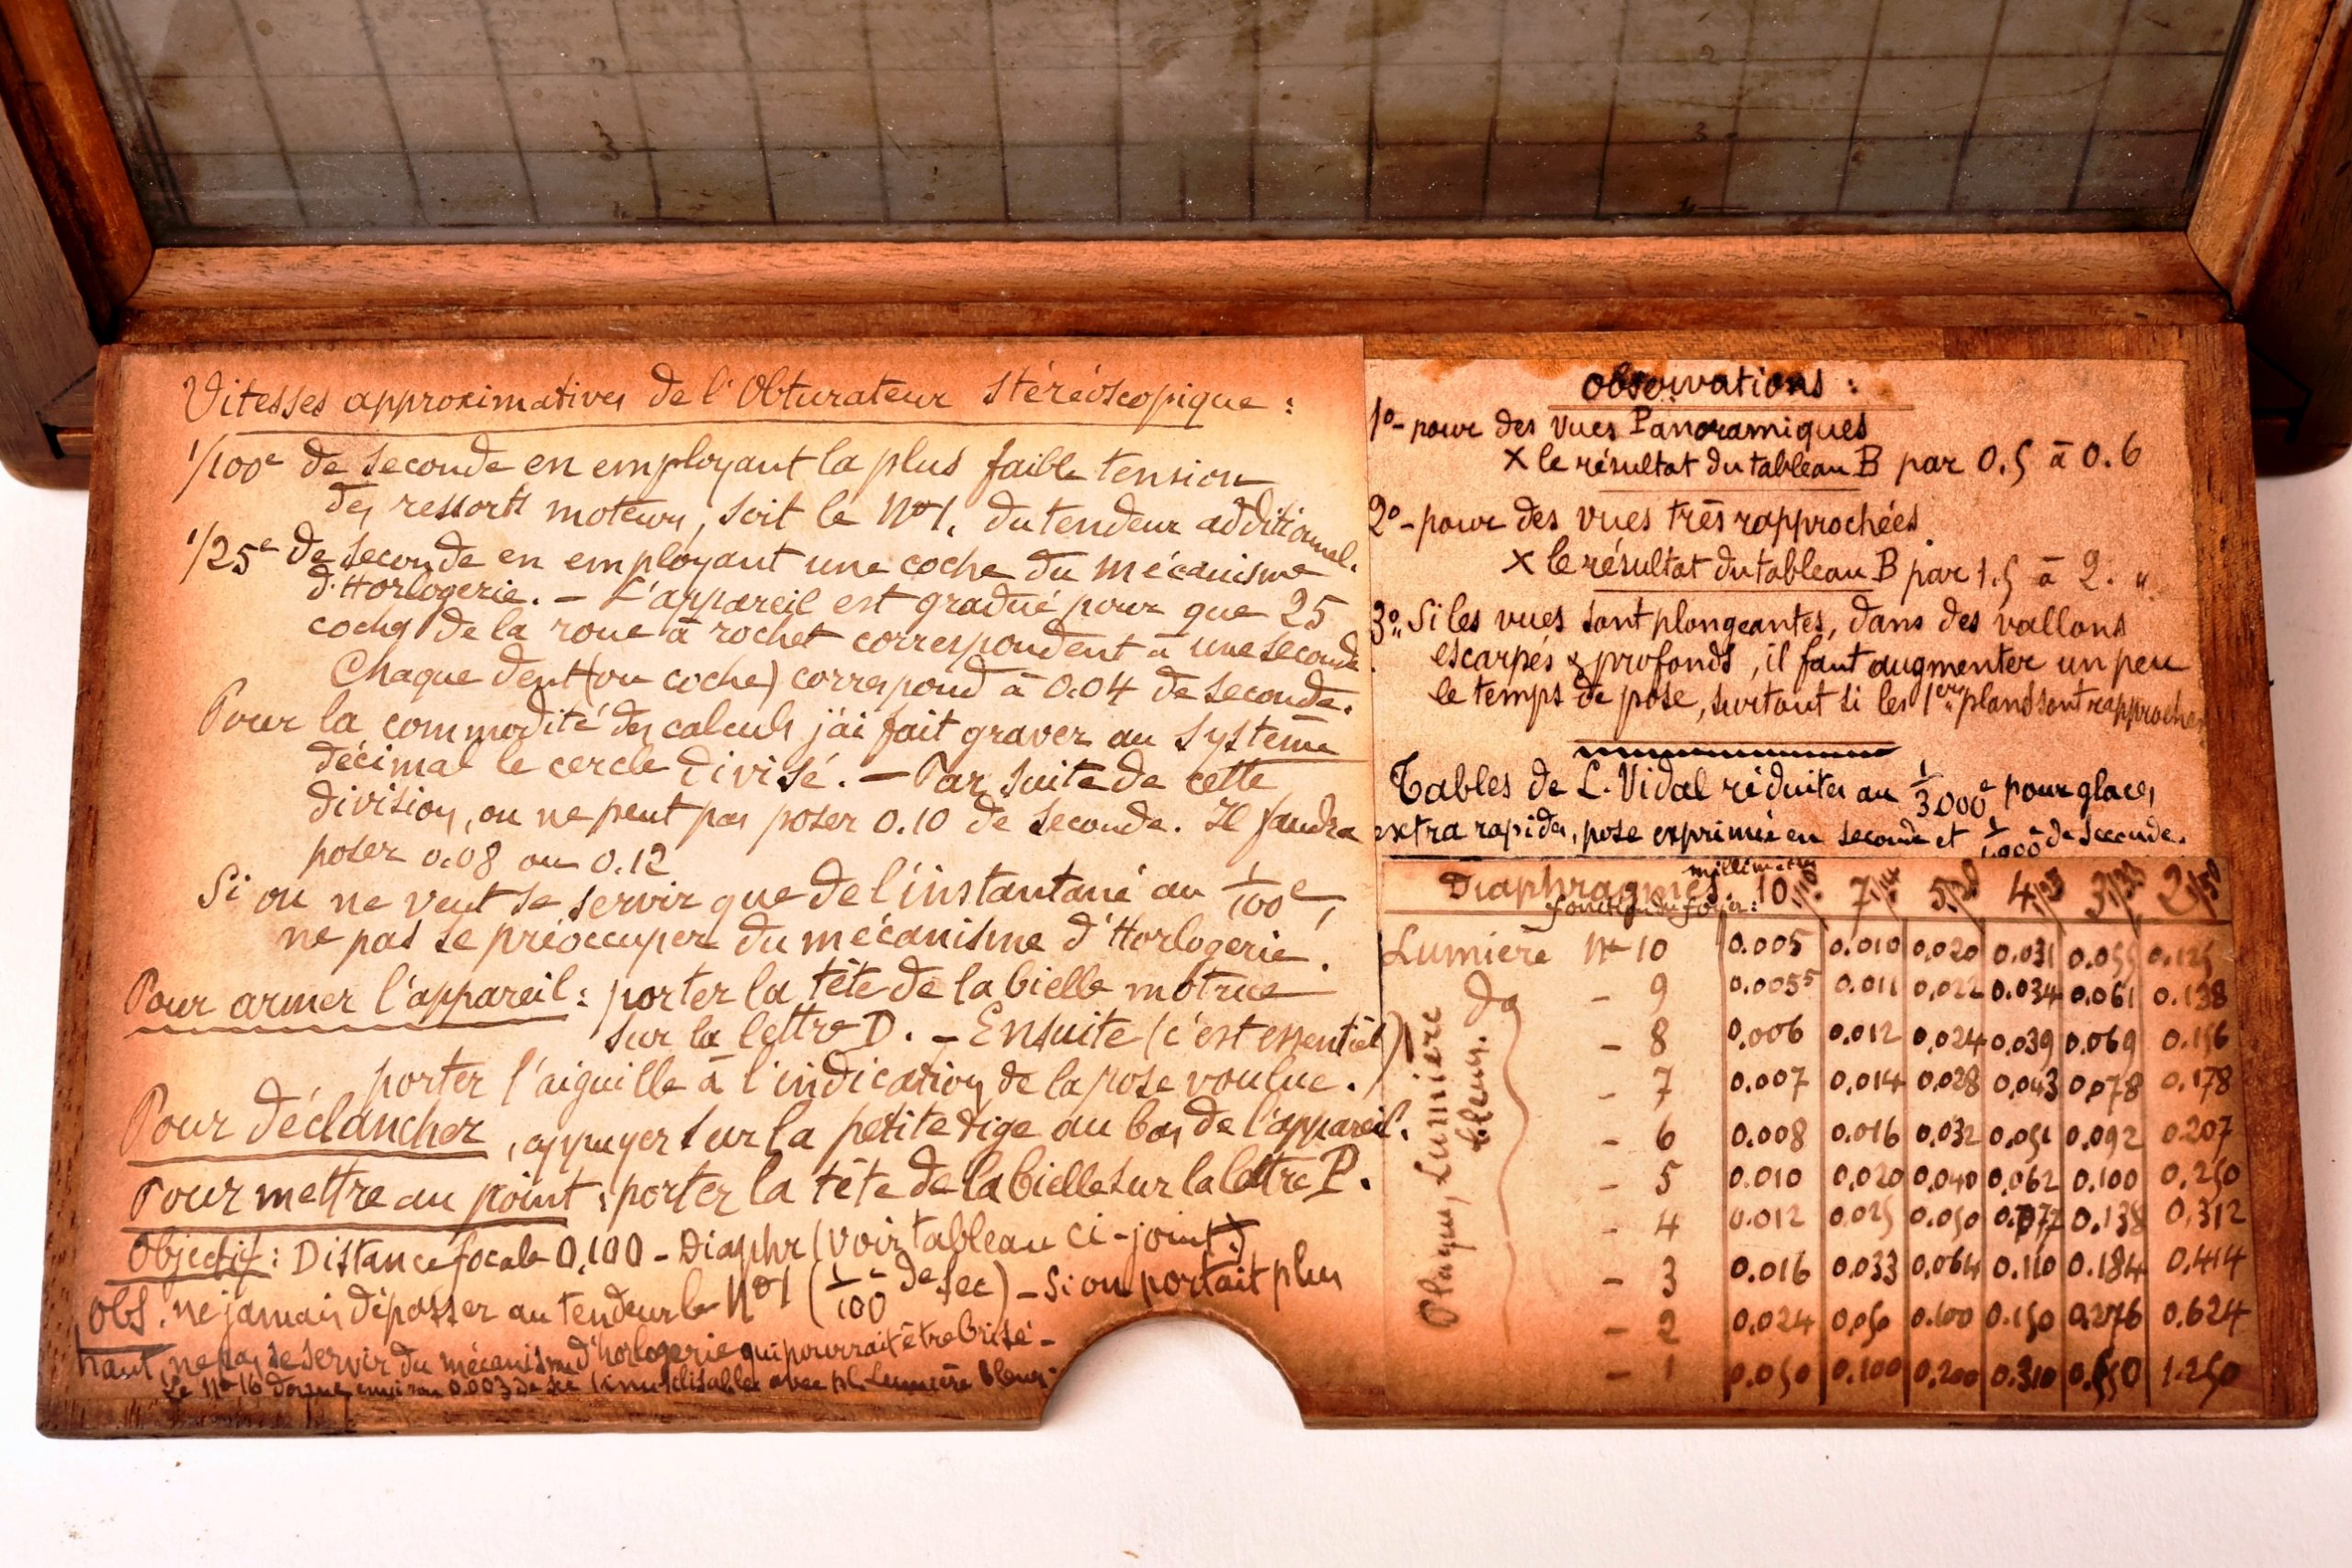 3
2
3
4
Vitesses approximatives de l'Obturateur Stéréoscopique :
1/100e de seconde en employant la plus faible tension
des ressorts moteurs, soit le No1. du tendeur additionnel.
1/25e de seconde en employant une coche du mécanisme
d'Horlogerie. - L'appareil est gradué pour que 25
coches de la roue à rochet correspondent à une seconde
Chaque dent (ou coche) correspond à 0.04 de seconde.
Pour la commodité des calculs j'ai fait graver au système
décimal le cercle divisé. - Par suite de cette
division, on ne peut pas poser 0.10 de seconde. Il faudra
poser 0.08 ou 0.12
Si on ne veut se servir que de l'instantané au 1/100e,
ne pas se préoccuper du mécanisme d'Horlogerie.
Pour armer l'appareil : porter la tête de la bielle motrice
sur la lettre D. - Ensuite (c'est essentiel)
porter l'aiguille à l'indication de la pose voulue.
Pour déclancher, appuyer sur la petite tige au bas de l'appareil.
Pour mettre au point : porter la tête de la bielle sur la lettre P.
Objectif : Distance focale 0,100 - Diaphr (voir tableau ci-joint)
Obs. ne jamais dépasser au tendeur le No1 (1/100e de sec) - Si on portait plus
haut, ne pas se servir du mécanisme d'horlogerie qui pourrait être brisé -
Le No 16 donne environ 0.003 de sec (inutilisable avec pl. Lumière bleue.
Observations :
1o- pour des vues Panoramiques
X le résultat du tableau B par 0.5 à 0.6
2o- pour des vues très rapprochées.
X le résultat du tableau B par 1.5 à 2. "
3o" Si les vues sont plongeantes, dans des vallons
escarpés & profonds, il faut augmenter un peu
le temps de pose, surtout si les 1ers plans sont rapprochés
Tables de L. Vidal réduites au 1/3000e pour glaces
extra rapides, pose exprimée en seconde et 1/1000e de seconde.
millimètres
Diaphragmes. 10 1/10 7 1/14 5 1/20 4 1/25 3 1/33 2 1/50
fonction du foyer :
Lumière No 10 0.005 0.010 0.020 0.031 0.055 0.125
do - 9 0.0055 0.011 0.022 0.034 0.061 0.138
- 8 0.006 0.012 0.024 0.039 0.069 0.156
- 7 0.007 0.014 0.028 0.043 0.078 0.178
- 6 0.008 0.016 0.032 0.051 0.092 0.207
- 5 0.010 0.020 0.040 0.062 0.100 0.250
- 4 0.012 0.025 0.050 0.072 0.138 0.312
- 3 0.016 0.033 0.064 0.110 0.184 0.414
- 2 0.024 0.050 0.100 0.150 0.276 0.624
- 1 0.050 0.100 0.200 0.310 0.550 1.250
Plaques, Lumière
bleues.